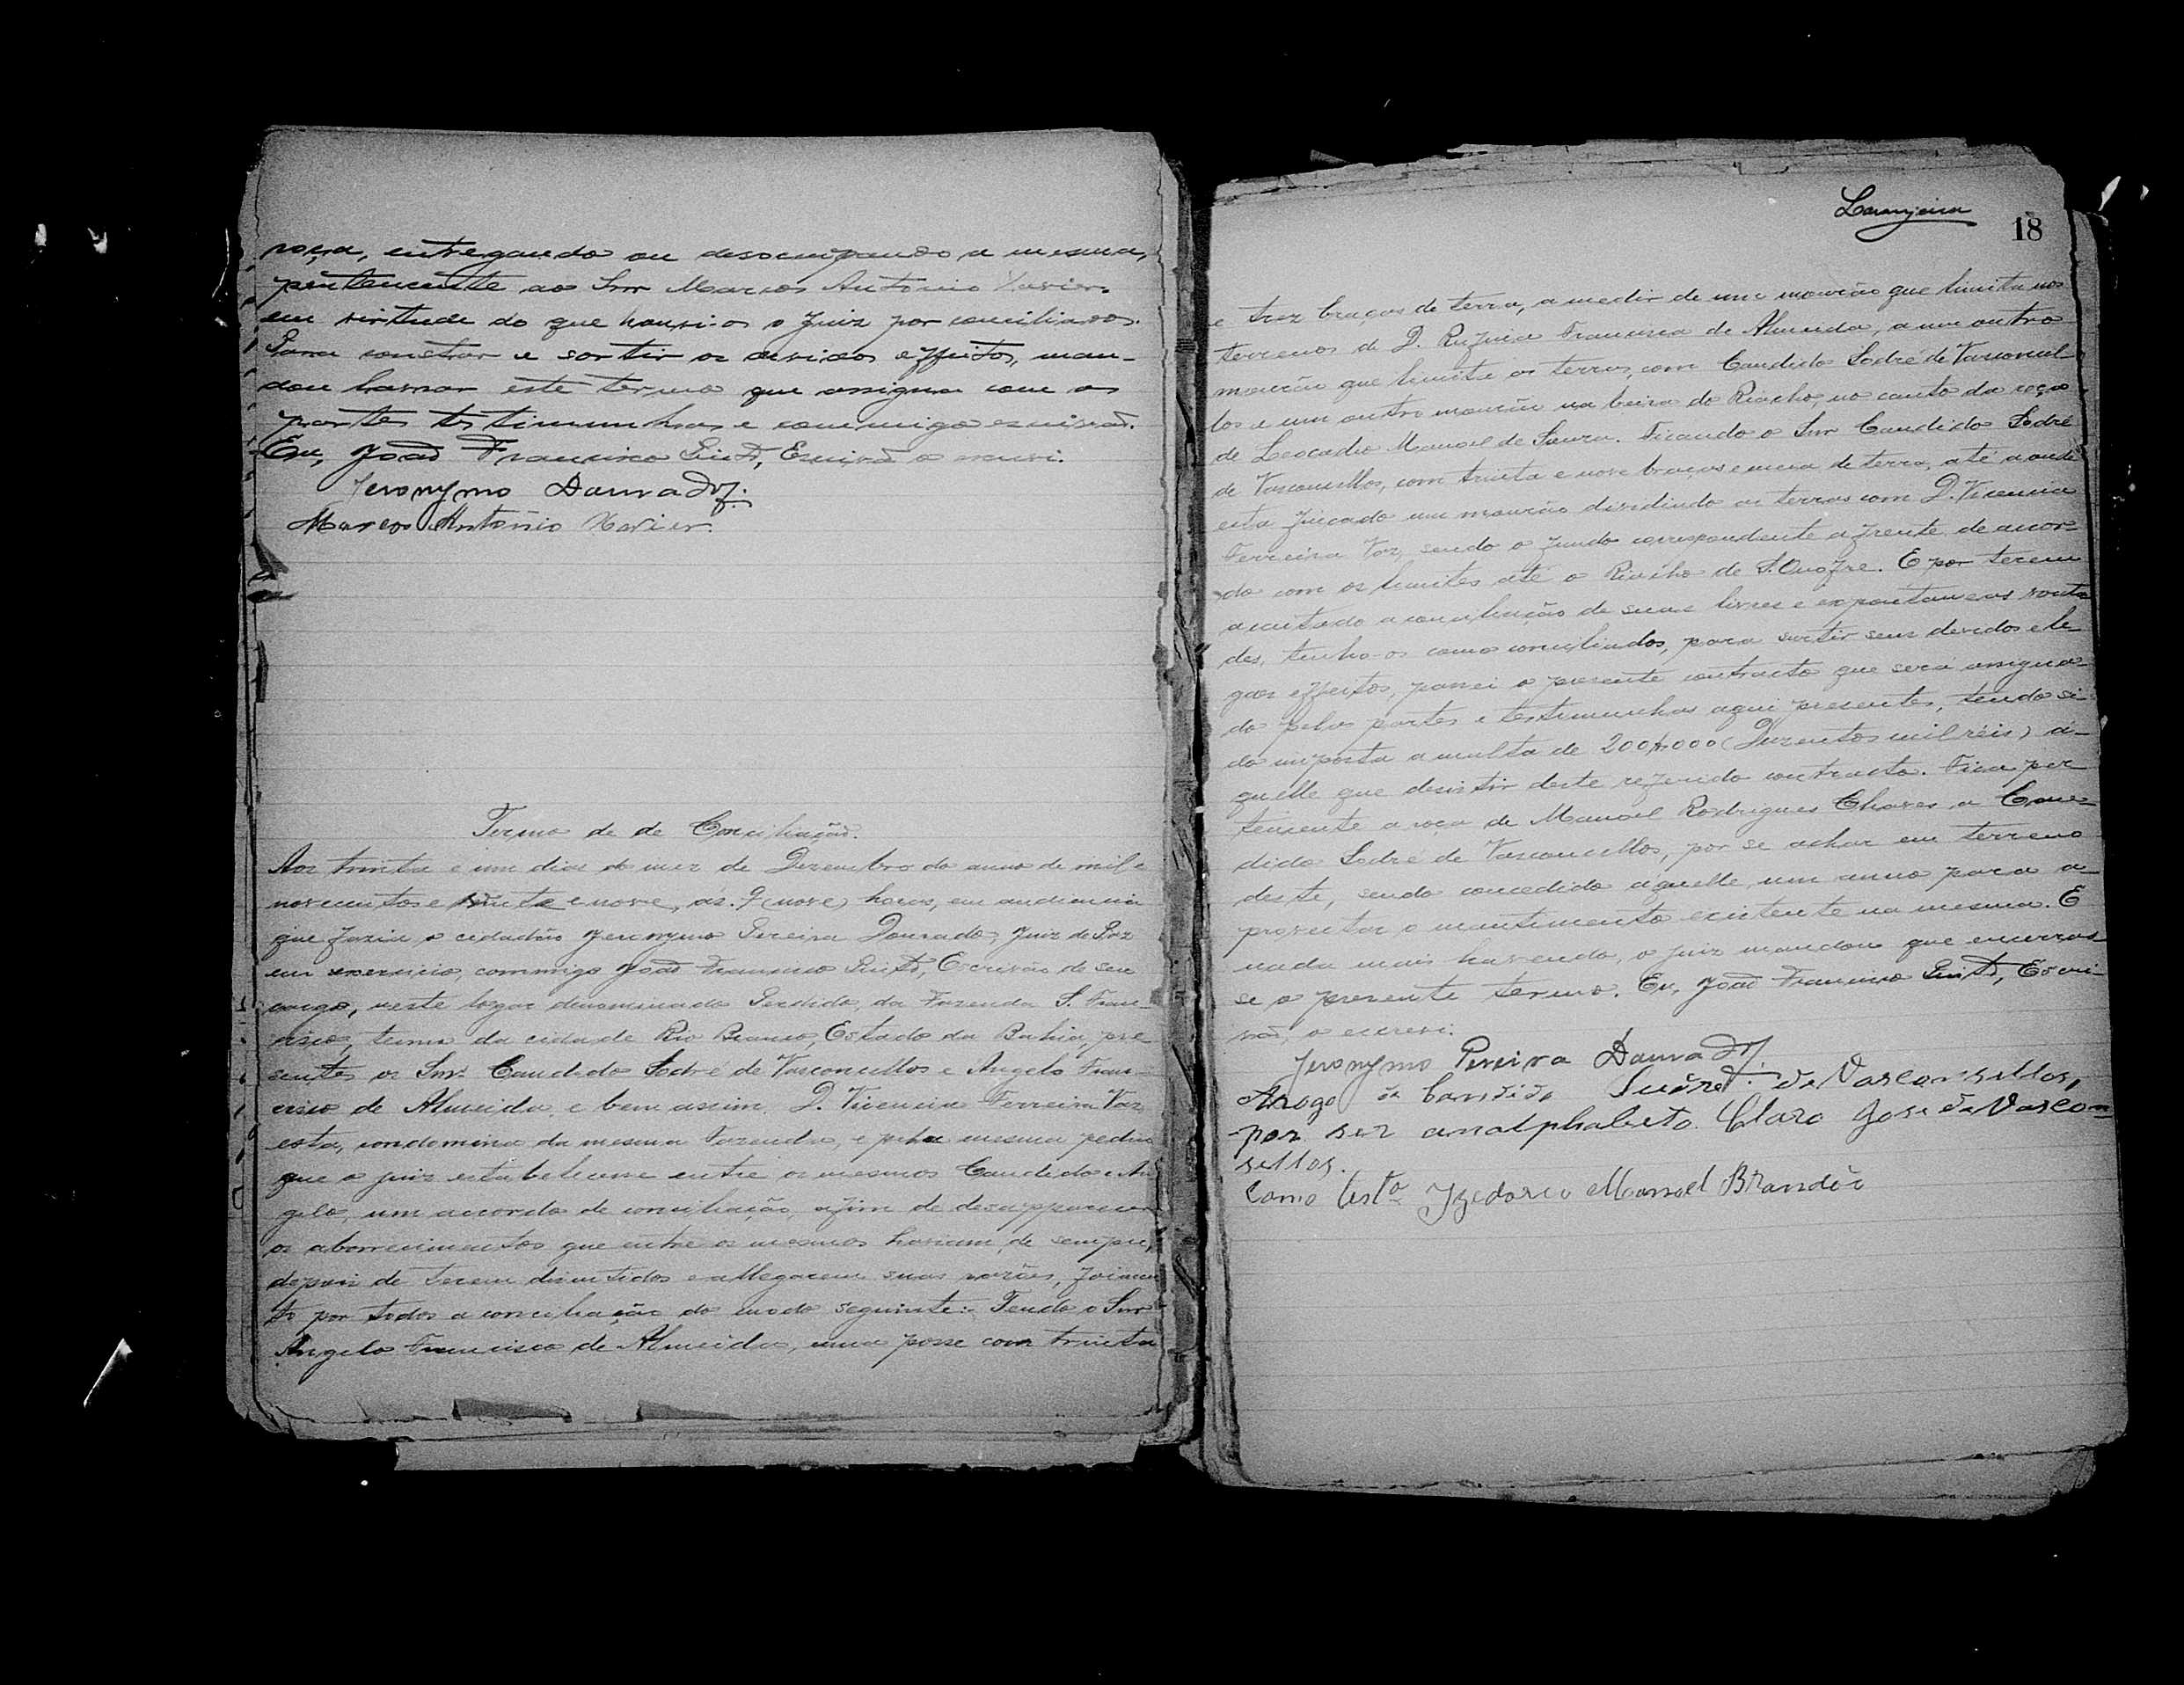 roça, entregando ou desocupando a mesma,
pertencente ao Snr Marcos Antônio Xavier.
em virtude do que houve-os o Juiz por conciliados.
Para constar e sortir os devidos effeitos, man-
dou lavrar este termo que assigna com as
partes testimunhas e commigo escrivão.
Eu, João Francisco Pinto, Escrivão o escrevi.
Jeronymo Dourado
Marcos Antônio Xavier.
Termo de de Conciliação.
Aos trinta e um dias do mez de Dezembro do anno de mil e
novecentos e vinte e nove, ás. 9 (nove) horas, em audiencia
que fazia o cidadão Jeronymo Pereira Dourado, Juiz de Paz
em exercicio, commigo João Francisco Pinto, Escrivão de seu
cargo, neste logar denominado Perdido, da Fazenda S. Fran-
cisco, termo da cidade Rio Branco, Estado da Bahia, pre
sentes os Snrs Candido Sodré de Vasconcellos e Angelo Fran-
cisco de Almeida, e bem assim, D. Vicencia Ferreira Vaz,
esta, condomina da mesma Fazenda, e pela mesma pediu
que o juiz estabelecesse entre os mesmos Candido e An
gelo, um accordo de conciliação, afim de desapparecer
os aborrecimentos que entre os mesmos haviam, de sempre,
depois de terem discutidos e allegarem suas razões, foi acei
to por todos a conciliação do modo seguinte:- Tendo o Snr
Angelo Francisco de Almeida, uma posse com trinta
Laranjeira
18
e trez braças de terra, a medir de um mourão que limita nos
terrenos de D. Rufina Francisca de Almeida, a um outro
mourão que limita as terras, com Candido Sodré de Vasconcel-
los e um outro mourão na beira do Riacho, no canto da roça
de Leocadio Manoel de Souza. Ficando o Snr Candido Sodré
de Vasconcellos, com trinta e nove braças e meia de terra, até aonde
está fincado um mourão dividindo as terras com D. Vicencia
Ferreira Vaz, sendo o fundo correspondente a frente, de accor-
do com os limites até o Riacho de S. Onofre. E por terem
aceitado a conciliação de suas livres e expontaneas vonta
des, tenho-os como conciliados, para surtir seus devidos e le
gaes effeitos, passei o presente contracto que será assigna-
do pelas partes e testimunhas aqui presentes, tendo si-
do imposta a multa de 200$000 (Duzentos mil réis) á-
quelle que desistir deste referido contracto. Fica per-
tencente a roça de Manoel Rodrigues Chaves a Can-
dido Sodré de Vasconcellos, por se achar em terreno
deste, sendo concedido áquelle, um anno para a-
proveitar o mantimento existente na mesma. E
nada mais havendo, o juiz mandou que encerras-
se o presente termo. Eu, João Francisco Pinto, Escri-
vão, o escrevi.
Jeronymo Pereira Dourado
Arogo de Candido Sudré de Vasconsellos,
por ser analphabeto. Claro José de Vascon
sellos.
Como testa Izedorio Manoel Brandão